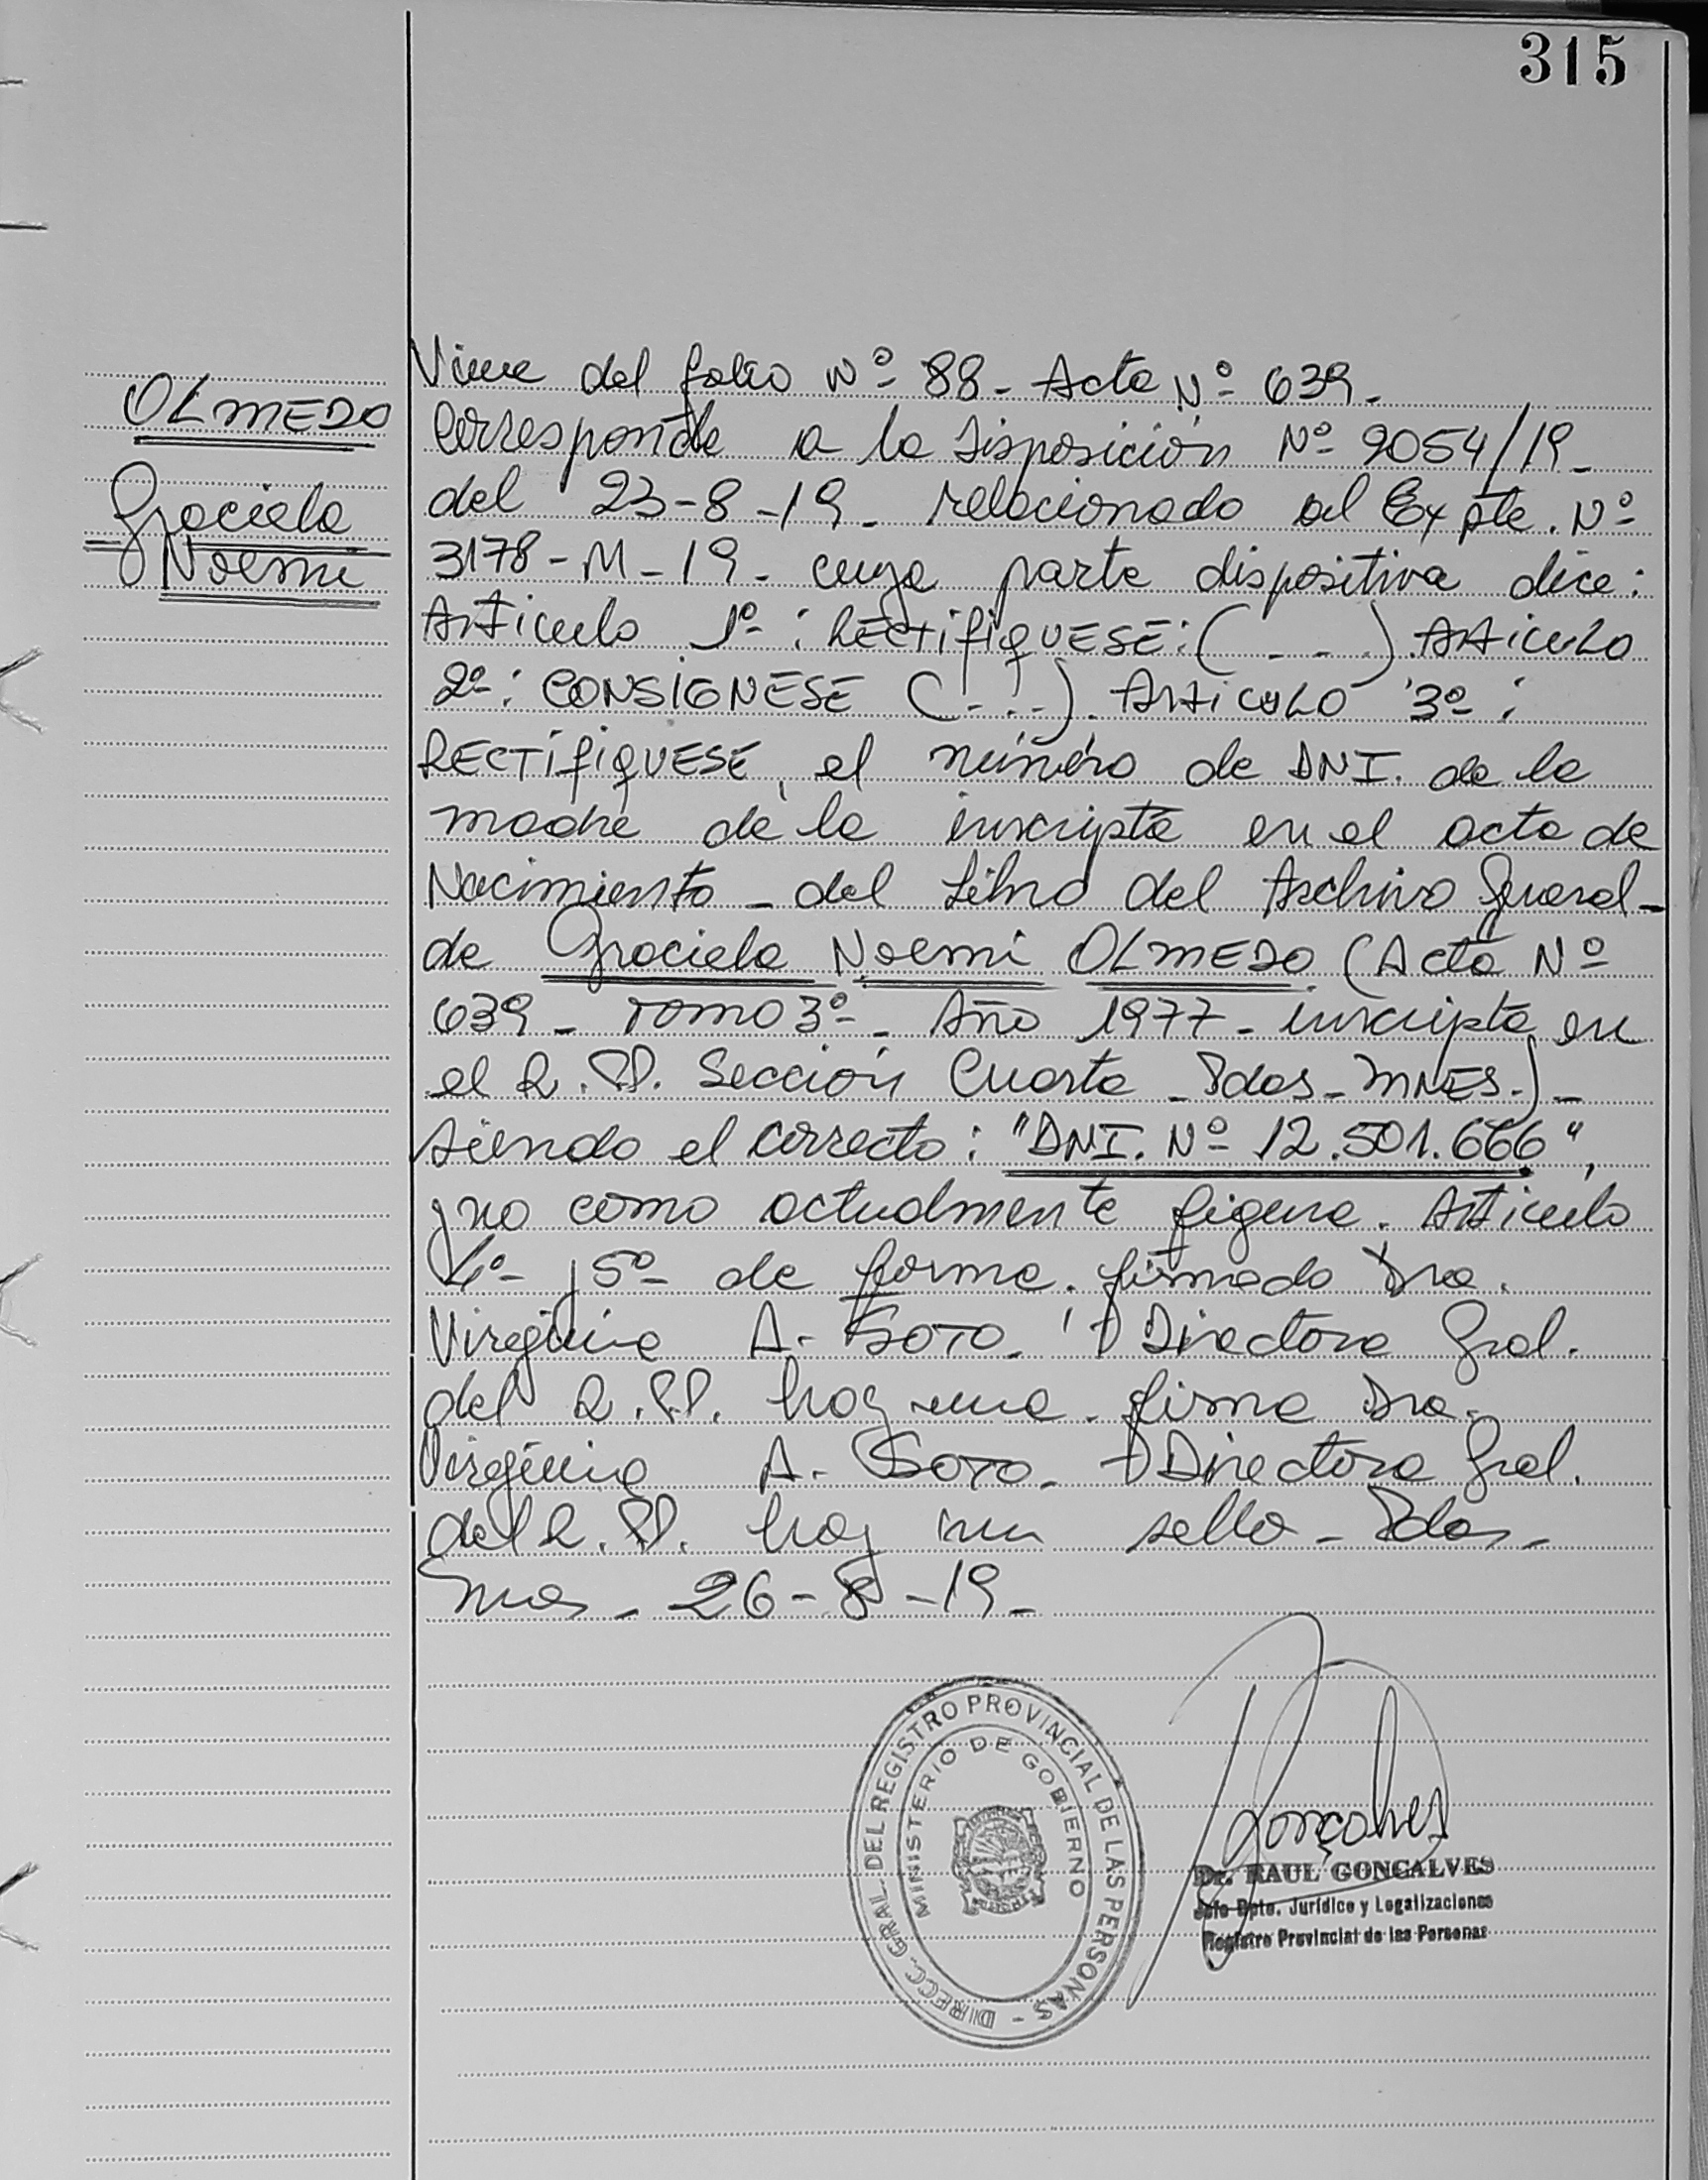 315
OLMEDO
Graciela
Noemi
Viene del folio Nº 88 - Acta Nº 639 -
Corresponde a la Disposición Nº 2054/19 -
del 23-8-19 - relacionado al Expte. Nº
3178-M-19 - cuya parte dispositiva dice:
Articulo 1º: RECTIFIQUESE: (...) ARTICULO
2º: CONSIGNESE (...). ARTICULO 3º:
RECTIFIQUESE, el número de DNI. de la
madre de la inscripta en el acta de
Nacimiento - del Libro del Archivo General -
de Graciela Noemi OLMEDO (Acta Nº
639 - Tomo 3º - Año 1977 - inscripta en
el R.P.P. Sección Cuarta - Pdas - MNES.) -
siendo el correcto: "DNI. Nº 12.501.666",
y no como actualmente figura. Articulo
4º y 5º de forma. firmado Dra.
Virginia A. SOTO. Directora Gral.
del R.P.P. hay una firma Dra.
Virginia A. SOTO. Directora Gral.
del R.P.P. hay un sello - Pdas -
Mnes - 26-8-19 -
DIRECC. GRAL. DEL REGISTRO PROVINCIAL DE LAS PERSONAS -
MINISTERIO DE GOBIERNO
Gonçalves
Dr. RAUL GONCALVES
Jefe Dpto. Jurídico y Legalizaciones
Registro Provincial de las Personas